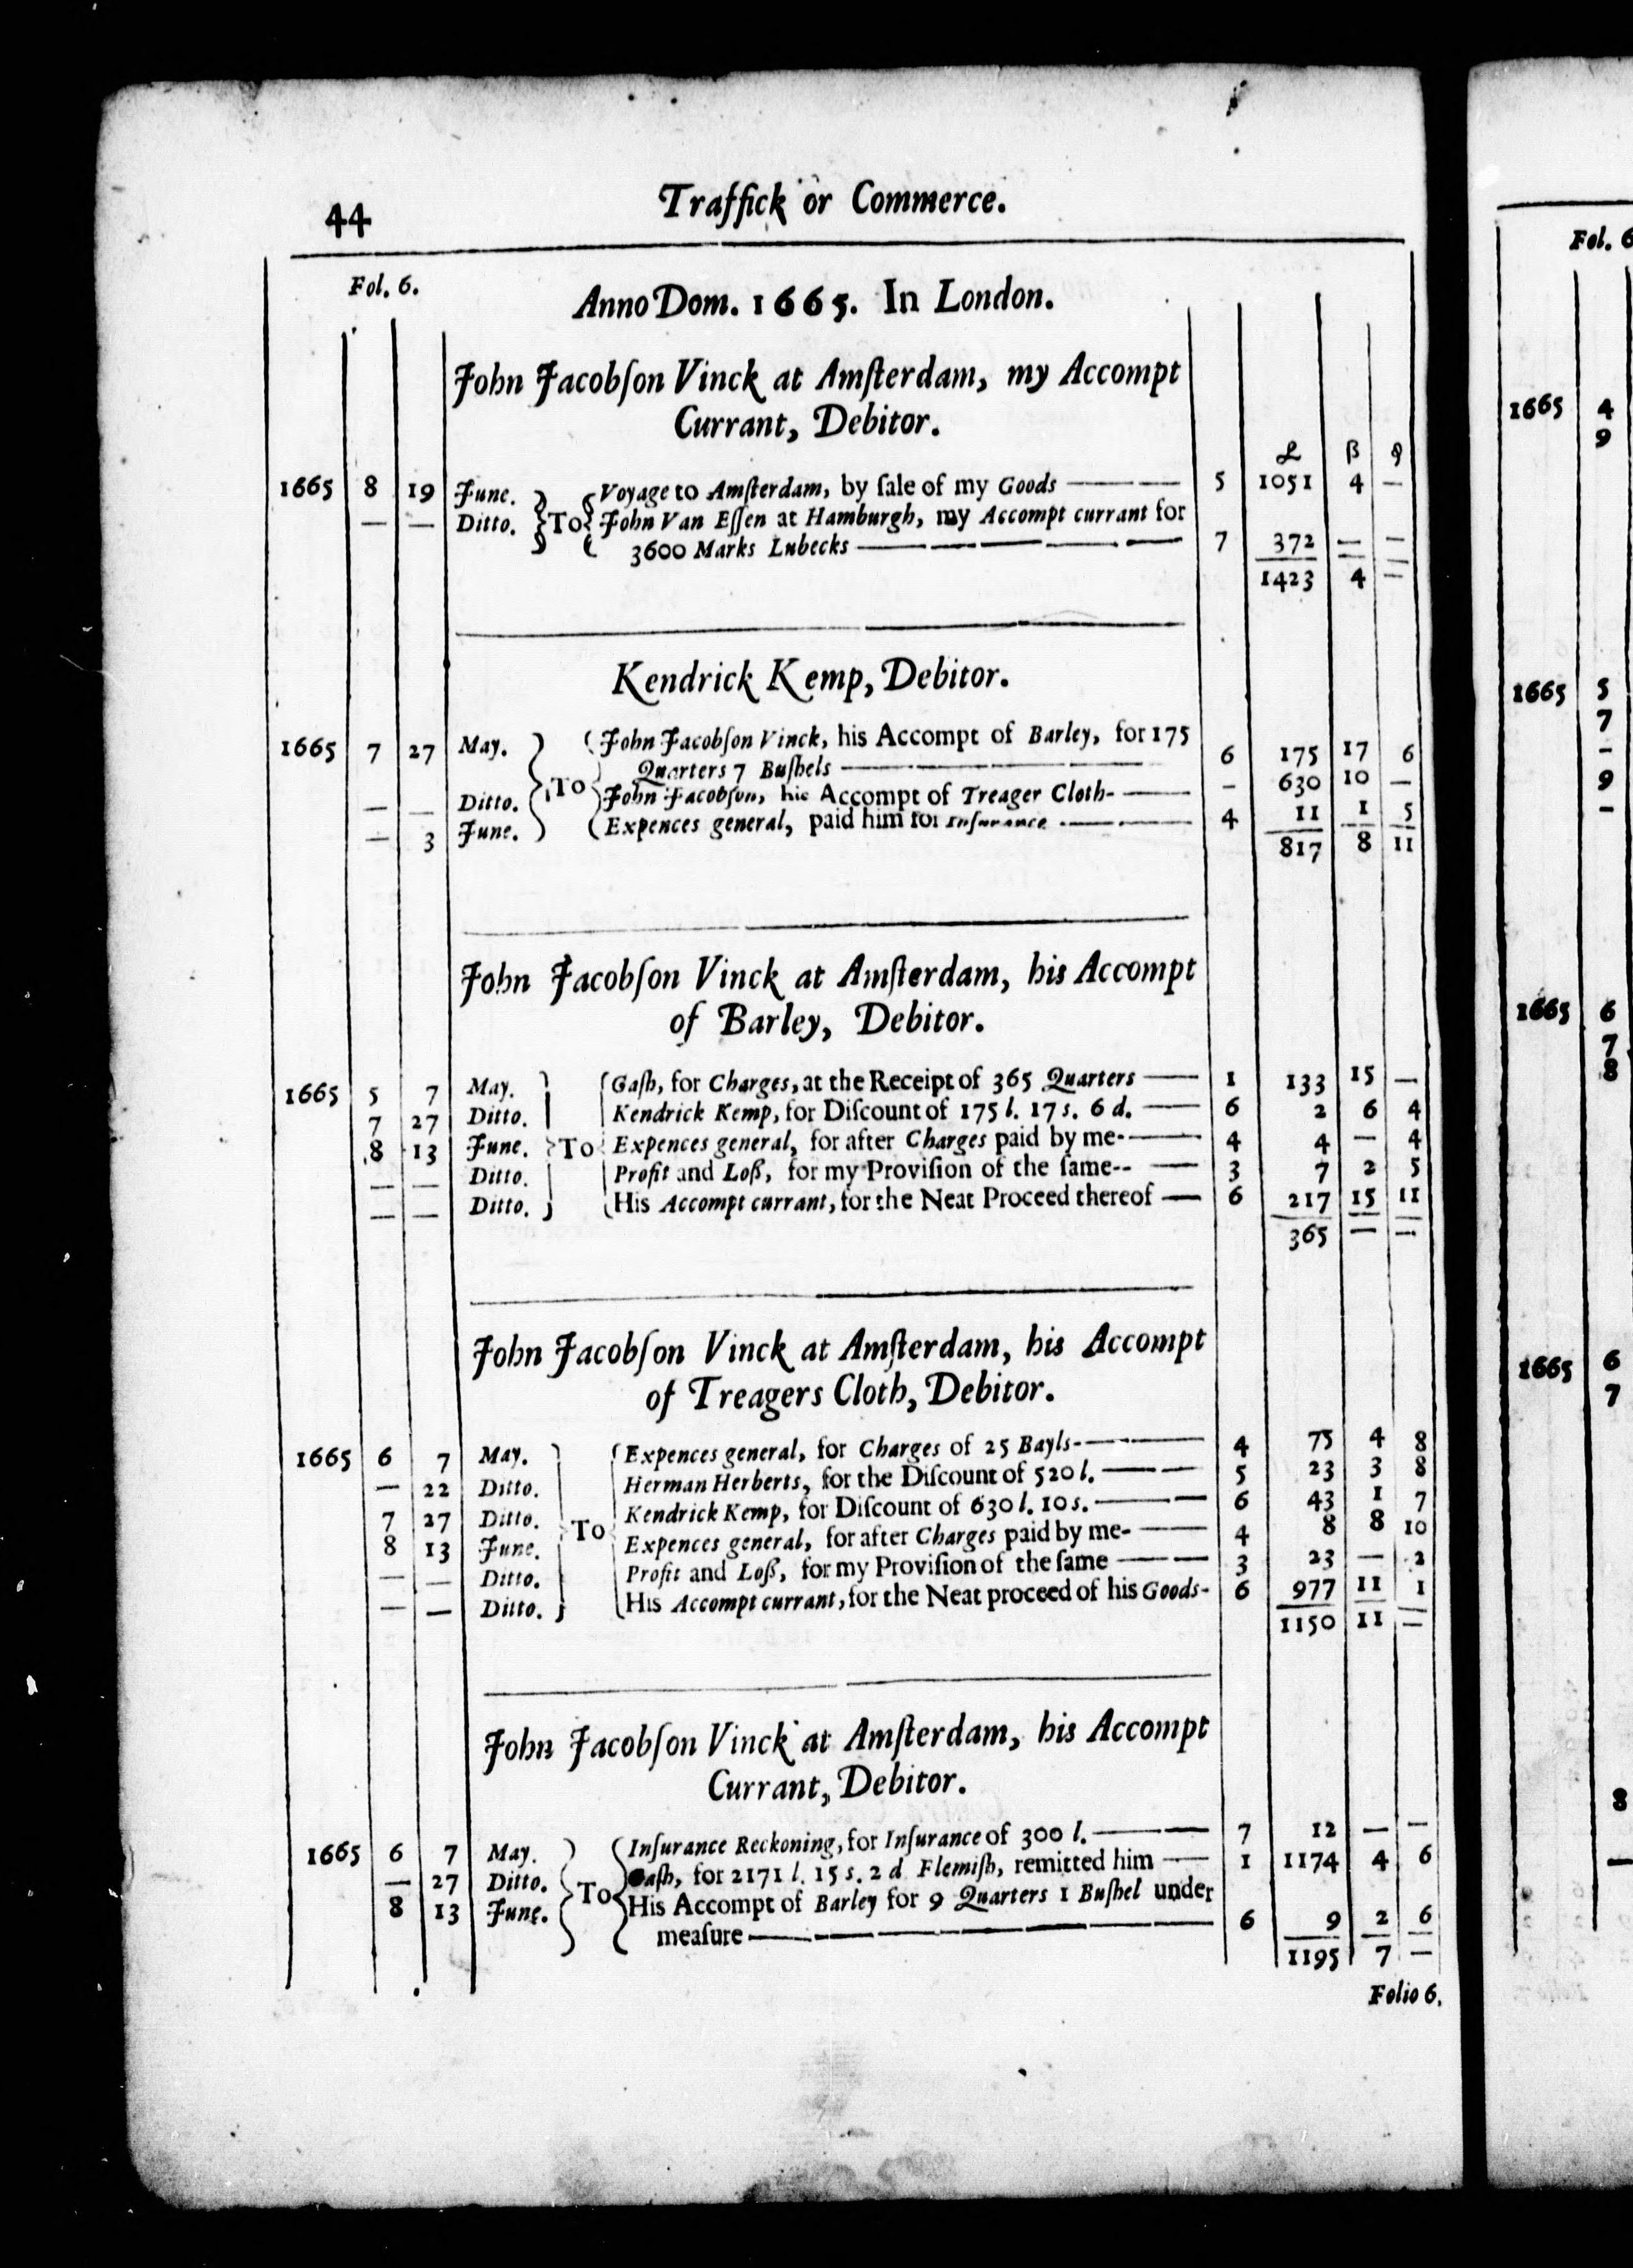 44
Traffick or Commerce.
Fol. 6.
Anno Dom. 1665. In London.
John Jacobſon Vinck at Amſterdam, my Accompt
Currant, Debitor.
£ ß
1665 8 19 June. To Voyage to Amſterdam, by ſale of my Goods —— 5 1051 4 —
— — Ditto. John Van Eſſen at Hamburgh, my Accompt currant for
3600 Marks Lubecks —— 7 372 — —
1423 4 —
Kendrick Kemp, Debitor.
1665 7 27 May. To John Jacobſon Vinck, his Accompt of Barley, for 175
Quarters 7 Buſhels —— 6 175 17 6
— — Ditto. John Jacobſon, his Accompt of Treager Cloth- —— - 630 10 —
— 3 June. Expences general, paid him for Inſurance —— 4 11 1 5
817 8 11
John Jacobſon Vinck at Amſterdam, his Accompt
of Barley, Debitor.
1665 5 7 May. To Gaſh, for Charges, at the Receipt of 365 Quarters —— 1 133 15 —
7 27 Ditto. Kendrick Kemp, for Diſcount of 175 l. 17 s. 6 d. —— 6 2 6 4
8 13 June. Expences general, for after Charges paid by me- —— 4 4 — 4
— — Ditto. Profit and Loß, for my Proviſion of the ſame-- —— 3 7 2 5
— — Ditto. His Accompt currant, for the Neat Proceed thereof — 6 217 15 11
365 — —
John Jacobſon Vinck at Amſterdam, his Accompt
of Treagers Cloth, Debitor.
1665 6 7 May. To Expences general, for Charges of 25 Bayls- —— 4 75 4 8
— 22 Ditto. Herman Herberts, for the Diſcount of 520 l. —— 5 23 3 8
7 27 Ditto. Kendrick Kemp, for Diſcount of 630 l. 10 s. —— 6 43 1 7
8 13 June. Expences general, for after Charges paid by me- —— 4 8 8 10
— — Ditto. Profit and Loß, for my Proviſion of the ſame —— 3 23 — 2
— — Ditto. His Accompt currant, for the Neat proceed of his Goods- 6 977 11 1
1150 11 —
John Jacobſon Vinck at Amſterdam, his Accompt
Currant, Debitor.
1665 6 7 May. To Inſurance Reckoning, for Inſurance of 300 l. —— 7 12 — —
— 27 Ditto. Caſh, for 2171 l. 15 s. 2 d Flemiſh, remitted him —— 1 1174 4 6
8 13 June. His Accompt of Barley for 9 Quarters 1 Buſhel under
meaſure —— 6 9 2 6
1195 7 —
Folio 6.
Fol. 6
1665 4
9
1665 5
7
-
9
-
1665 6
7
8
1665 6
7
8
—